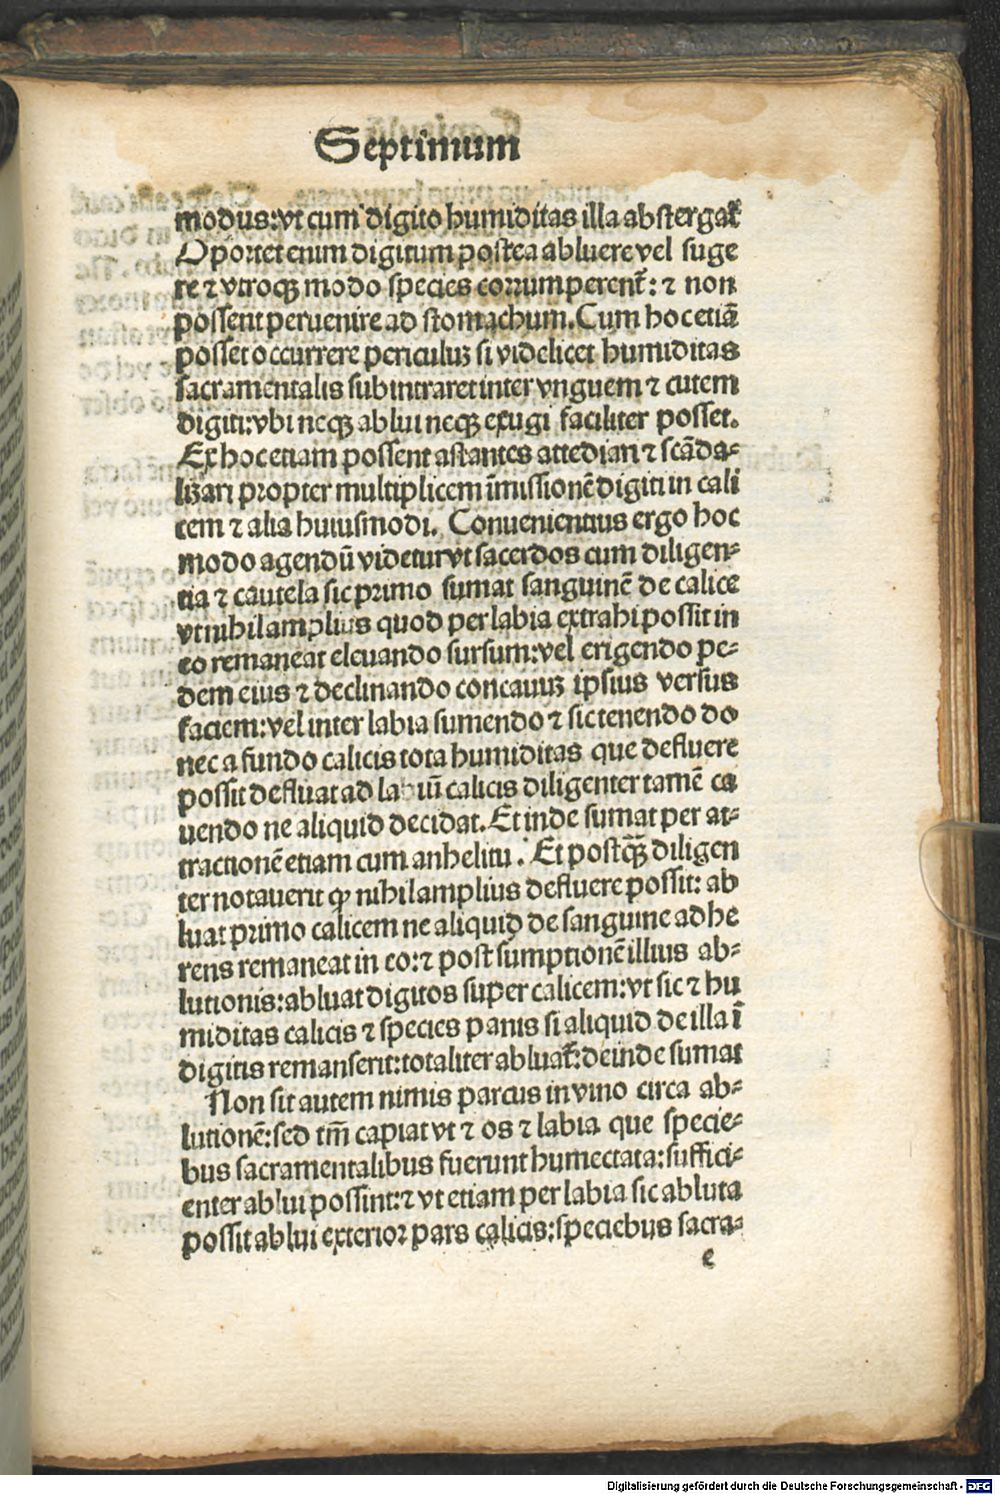 Septimum
modus: vt cum digito humiditas illa abstergať
Oportet enim digitum postea abluere vel suge
re ⁊ vtroqꝫ modo species corrumperenť: ⁊ non
possent peruenire ad stomachum. Cum hoc etiā
posset occurrere periculuꝫ si videlicet humiditas
sacramentalis subintraret inter vnguem ⁊ cutem
digiti: vbi neqꝫ ablui neqꝫ exugi faciliter posset.
Ex hoc etiam possent astantes attediari ⁊ scāda⸗
lizari propter multiplicem īmissionē digiti in cali
cem ⁊ alia huiusmodi. Conuenientius ergo hoc
modo agendū videtur vt sacerdos cum diligen⸗
tia ⁊ cautela sic primo sumat sanguinē de calice
vt nihil amplius quod per labia extrahi possit in
eo remaneat eleuando sursum: vel erigendo pe⸗
dem eius ⁊ declinando concauuꝫ ipsius versus
faciem: vel inter labia sumendo ⁊ sic tenendo do
nec a fundo calicis tota humiditas que defluere
possit defluat ad labiū calicis diligenter tamē ca
uendo ne aliquid decidat. Et inde sumat per at⸗
tractionē etiam cum anhelitu. Et postqꝫ̄ diligen
ter notauerit ꝙ nihil amplius defluere possit: ab
luat primo calicem ne aliquid de sanguine adhe
rens remaneat in eo: ⁊ post sumptionē illius ab⸗
lutionis: abluat digitos super calicem: vt sic ⁊ hu
miditas calicis ⁊ species panis si aliquid de illa ī
digitis remanserit: totaliter abluať: deinde sumat
Non sit autem nimis parcus in vino circa ab⸗
lutionē: sed tm̄ capiat vt ⁊ os ⁊ labia que specie⸗
bus sacramentalibus fuerunt humectata: suffici⸗
enter ablui possint: ⁊ vt etiam per labia sic abluta
possit ablui exterior pars calicis: speciebus sacra⸗
e
Digitalisierung gefördert durch die Deutsche Forschungsgemeinschaft - DFG